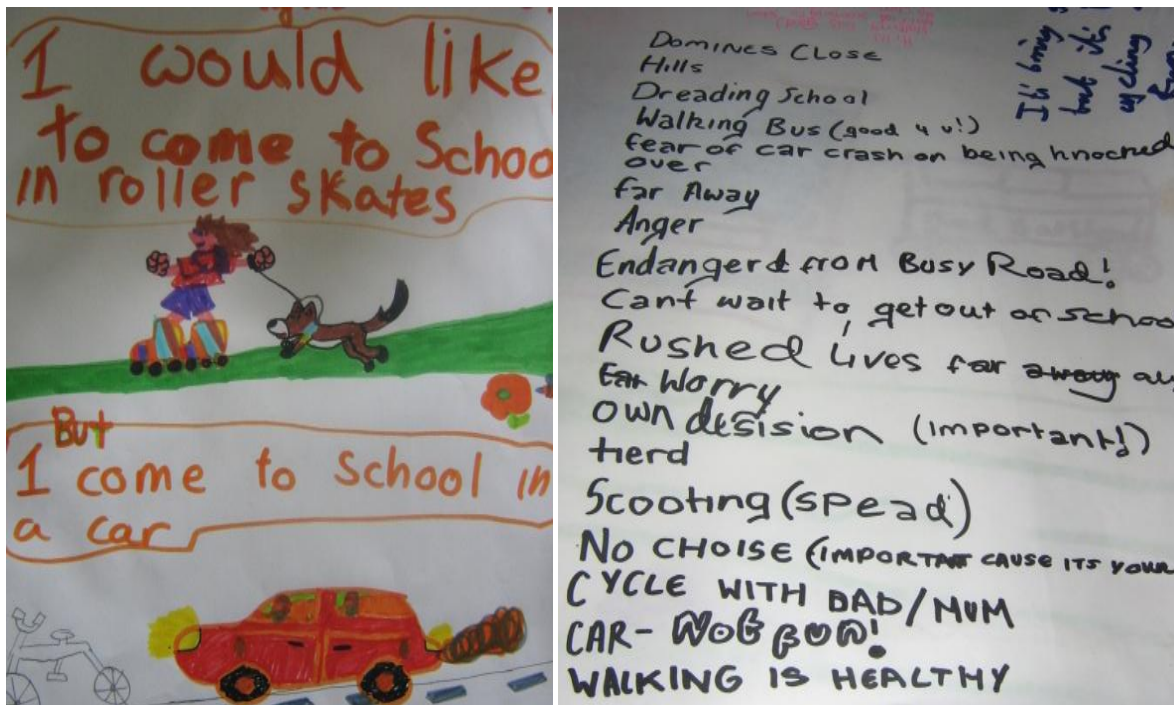 I would like
to come to Schoo
in roller skates
But
I come to school in
a car
Domines Close
Hills
Dreading School
Walking Bus (good 4 u!)
fear of car crash on being knocked
over
far Away
Anger
Endangerd from Busy Road!
Cant wait to get out of schoo
Rushed lives far away
Far Worry
own desision (important!)
tierd
Scooting (spead)
NO CHOISE (IMPORTANT CAUSE ITS YOUR
CYCLE WITH DAD/MUM
CAR- NOT FUN!
WALKING IS HEALTHY
It bring
but its
cycling